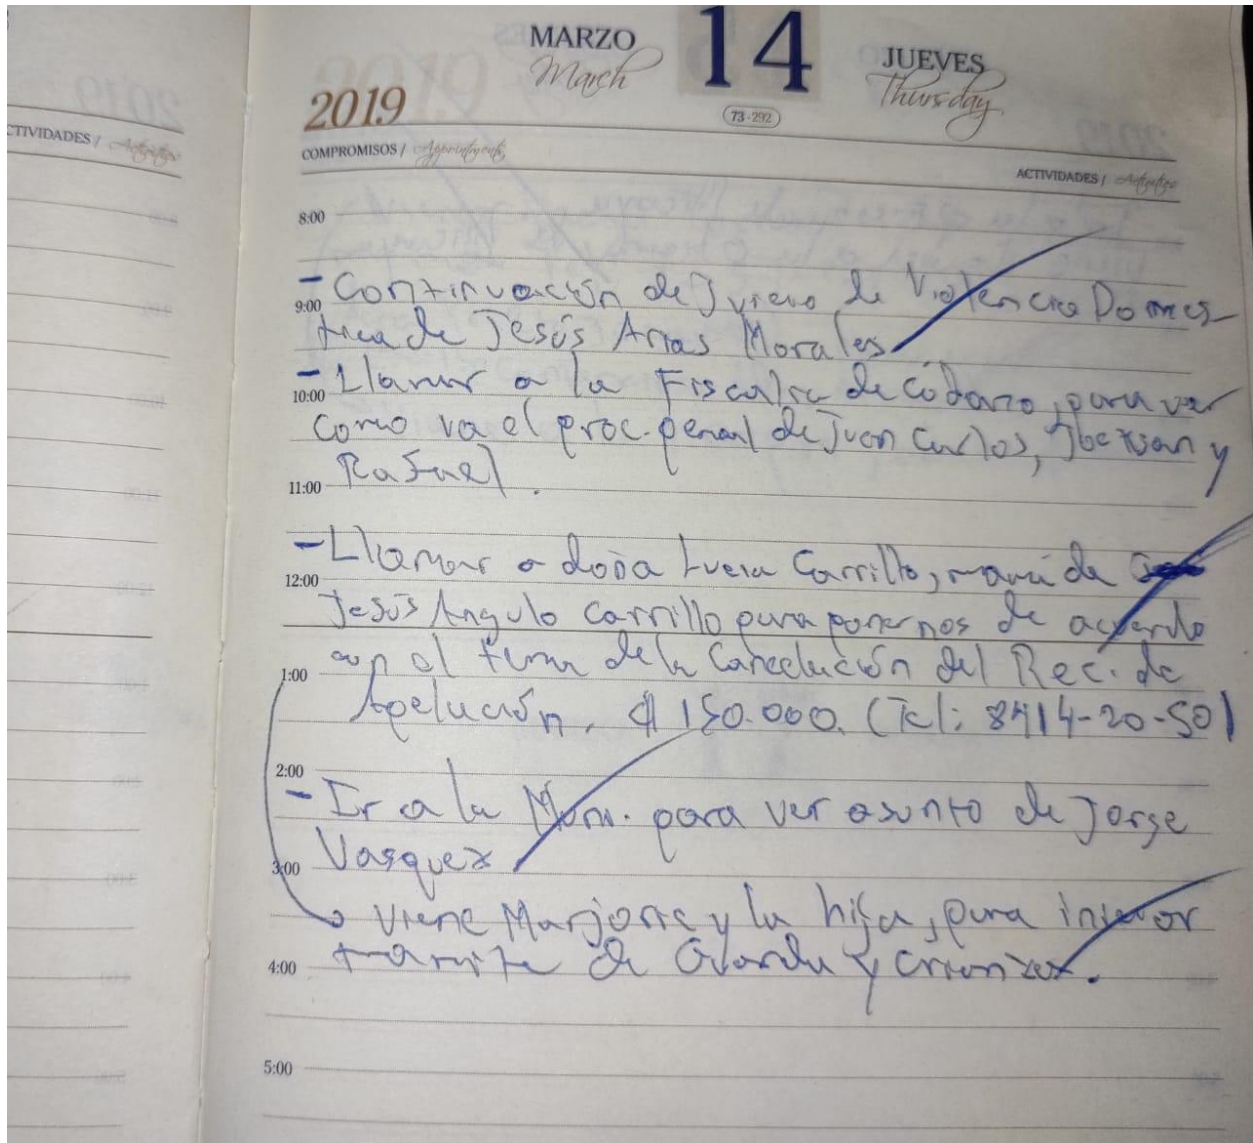 CTIVIDADES / Activities
MARZO
March
14
JUEVES
Thursday
2019
73-292
COMPROMISOS / Appointments
ACTIVIDADES / Activities
8:00
- Continuación de Juicio de Violencia Domes-
9:00
tica de Jesús Arias Morales
- Llamar a la Fiscalia de, para ver
10:00
como va el proc. penal de Juan Carlos, y
Rafael.
11:00
- Llamar a doña Lucia Carrillo, mamá de
12:00
Jesús Angulo Carrillo para ponernos de acuerdo
con el tema de la Cancelación del Rec. de
1:00
Apelación. ₡ 150.000. (Tel: 8414-20-50)
2:00
- Ir a la Muni. para ver asunto de Jorge
Vasquez
3:00
Viene Marjorie y la hija, para iniciar
tramite de Guarda y crianza.
4:00
5:00